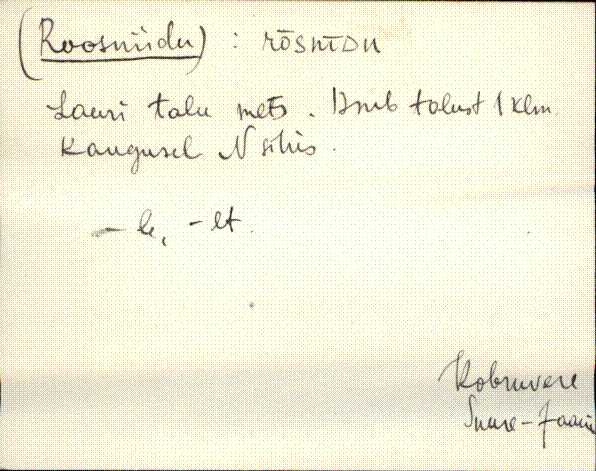 (Roosniidu) : RŌSNĪDU
Lauri talu mets. Asub talust 1 klm.
Kaugusel N sihis.
- le, - lt.
Kobruvere
Suure-Jaani